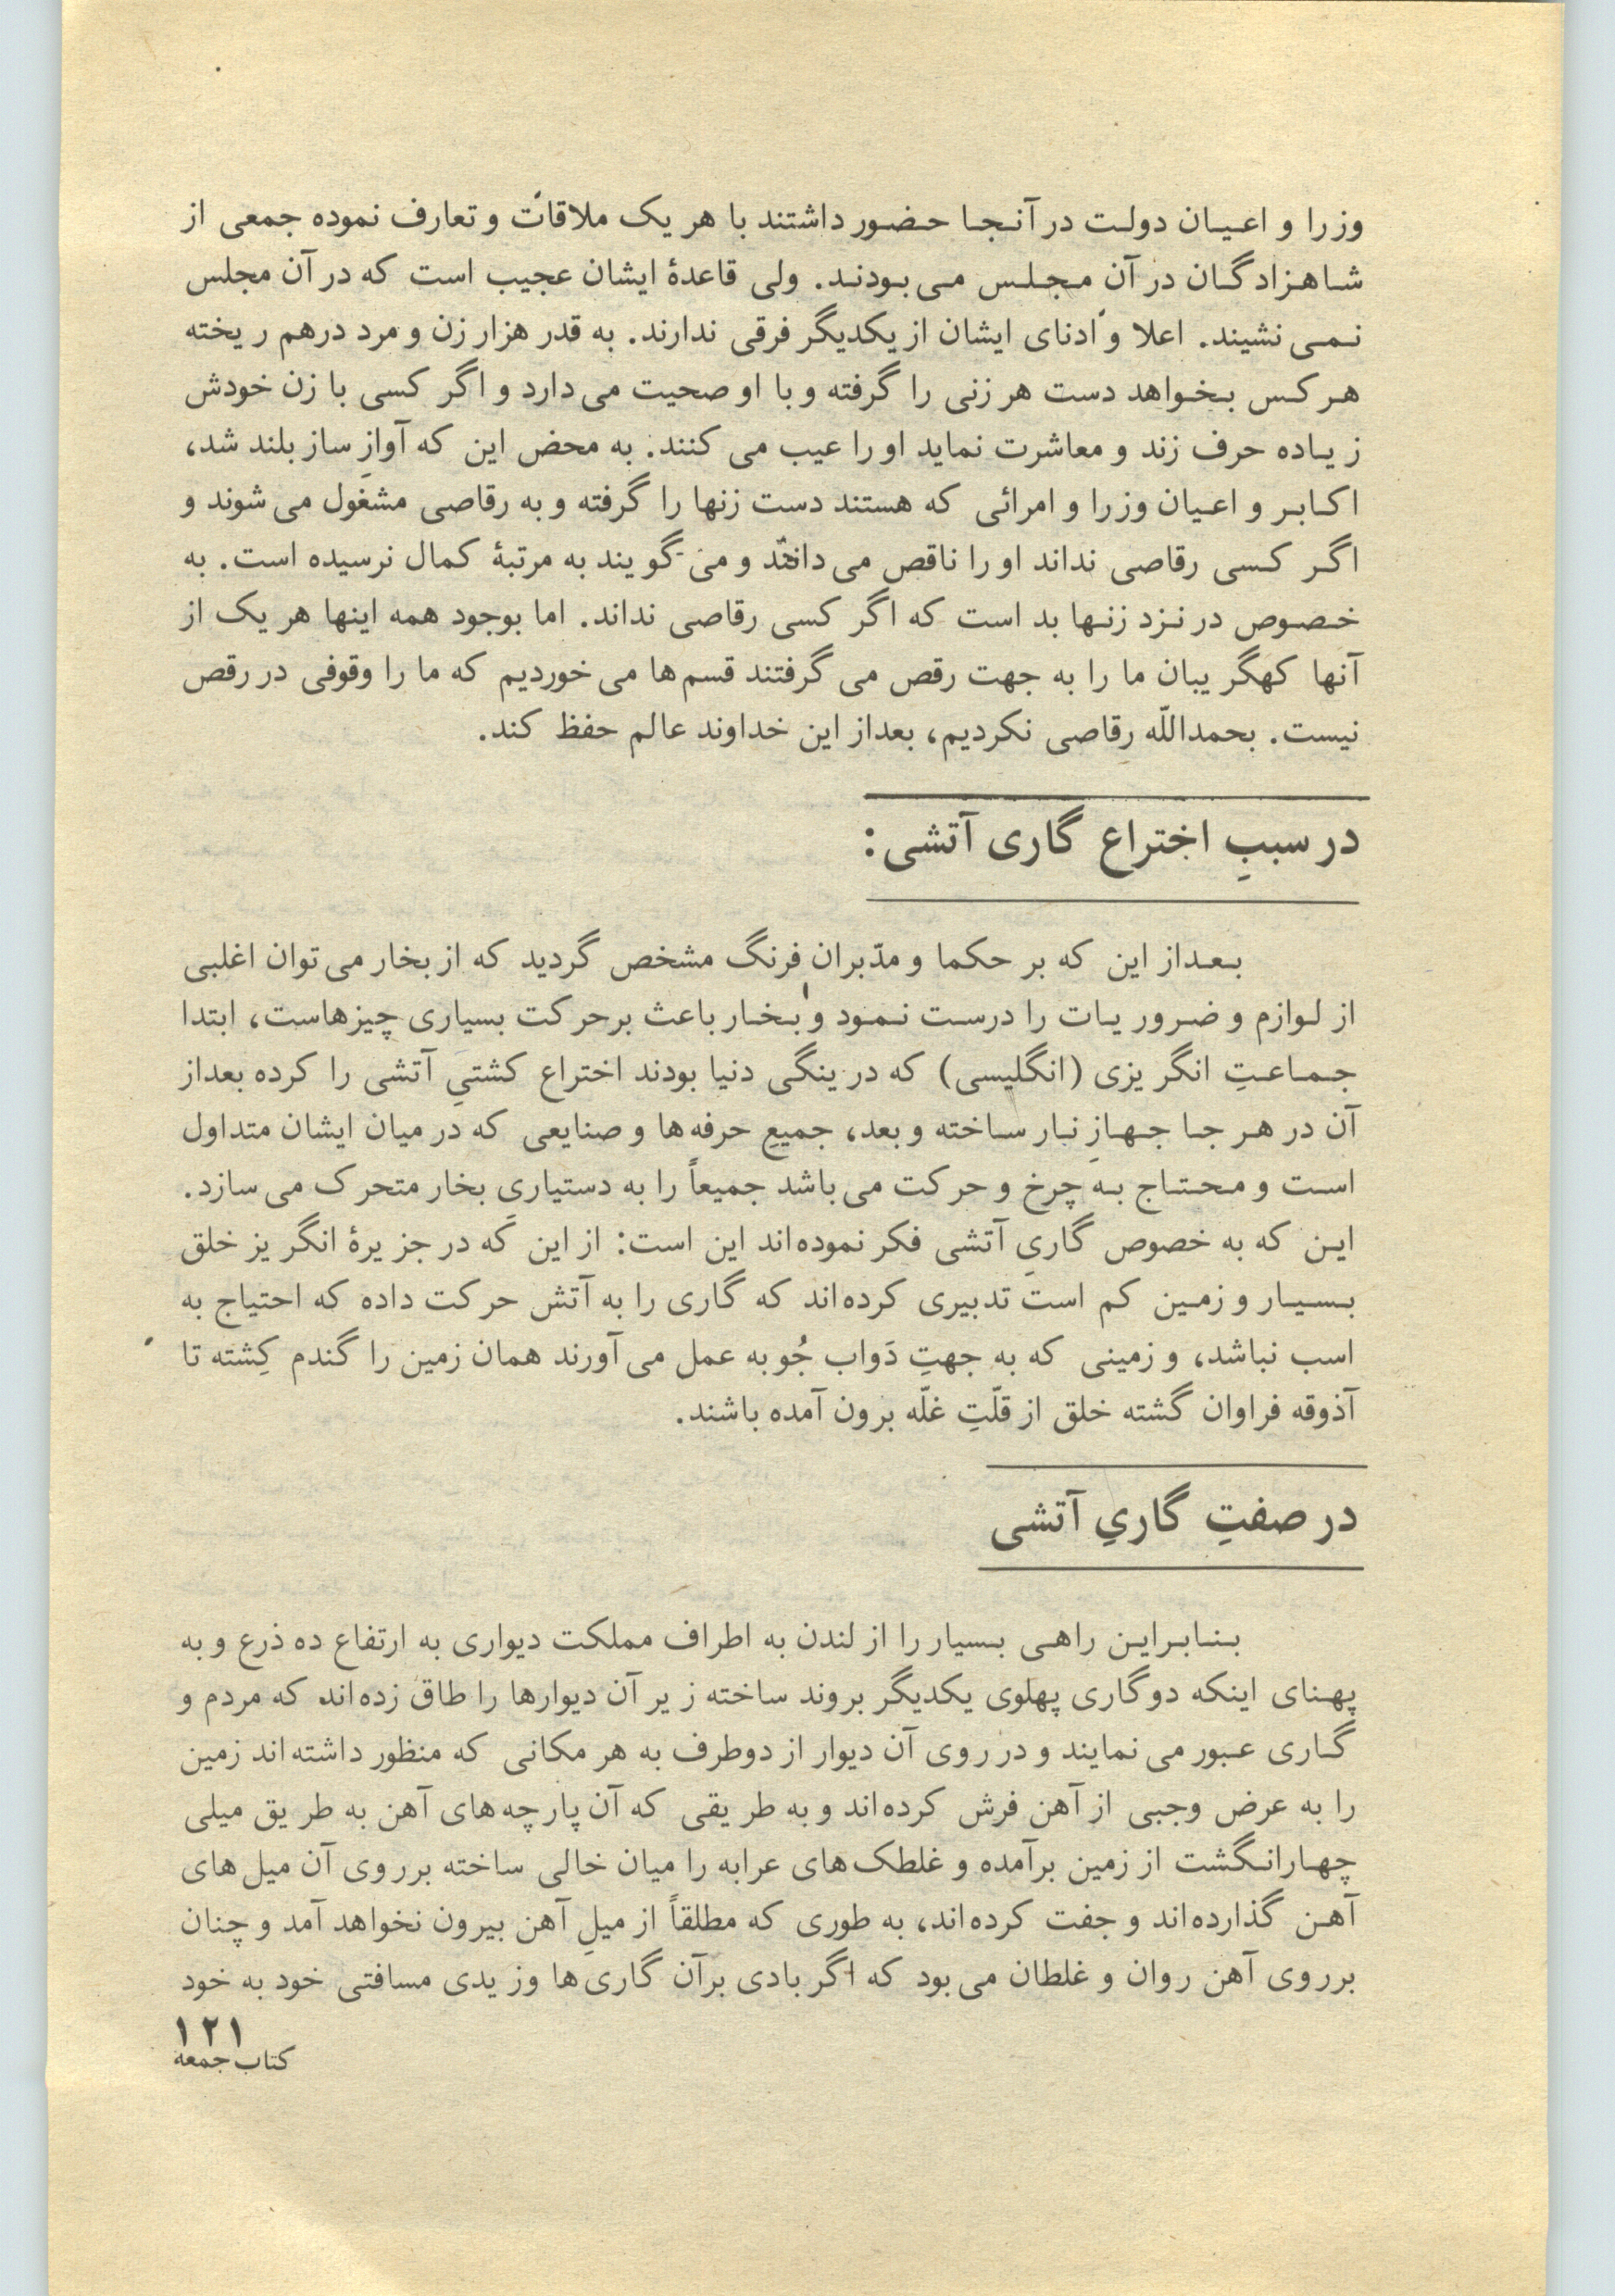 وزرا و اعیان دولت در آنجا حضور داشتند با هر یک ملاقات و تعارف نموده جمعی از
شاهزادگان در آن مجلس می‌بودند. ولی قاعدهٔ ایشان عجیب است که در آن مجلس
نمی‌نشیند. اعلا و ادنای ایشان از یکدیگر فرقی ندارند. به قدر هزار زن و مرد درهم ریخته
هر کس بخواهد دست هر زنی را گرفته و با او صحیت می‌دارد و اگر کسی با زن خودش
زیاده حرف زند و معاشرت نماید او را عیب می‌کنند. به محض این که آوازِ ساز بلند شد،
اکابر و اعیان وزرا و امرائی که هستند دست زنها را گرفته و به رقاصی مشغول می‌شوند و
اگر کسی رقاصی نداند او را ناقص می‌دانند و می‌گویند به مرتبهٔ کمال نرسیده است. به
خصوص در نزد زنها بد است که اگر کسی رقاصی نداند. اما بوجود همه اینها هر یک از
آنها کهگریبان ما را به جهت رقص می‌گرفتند قسم‌ها می‌خوردیم که ما را وقوفی در رقص
نیست. بحمدالله رقاصی نکردیم، بعداز این خداوند عالم حفظ کند.
در سببِ اختراع گاری آتشی:
بعداز این که بر حکما و مدّبران فرنگ مشخص گردید که از بخار می‌توان اغلبی
از لوازم و ضروریات را درست نمود و بخار باعث برحرکت بسیاری چیزهاست، ابتدا
جماعتِ انگریزی (انگلیسی) که در ینگی دنیا بودند اختراع کشتیِ آتشی را کرده بعداز
آن در هر جا جهازِ نبار ساخته و بعد، جمیعِ حرفه‌ها و صنایعی که در میان ایشان متداول
است و محتاج به چرخ و حرکت می‌باشد جمیعاً را به دستیاریِ بخار متحرک می‌سازد.
این که به خصوص گاریِ آتشی فکر نموده‌اند این است: از این که در جزیرهٔ انگریز خلق
بسیار و زمین کم است تدبیری کرده‌اند که گاری را به آتش حرکت داده که احتیاج به
اسب نباشد، و زمینی که به جهتِ دَواب جُو به عمل می‌آورند همان زمین را گندم کِشته تا
آذوقه فراوان گشته خلق از قلّتِ غلّه برون آمده باشند.
در صفتِ گاریِ آتشی
بنابراین راهی بسیار را از لندن به اطراف مملکت دیواری به ارتفاع ده ذرع و به
پهنای اینکه دو گاری پهلوی یکدیگر بروند ساخته زیر آن دیوارها را طاق زده‌اند که مردم و
گاری عبور می‌نمایند و در روی آن دیوار از دوطرف به هر مکانی که منظور داشته‌اند زمین
را به عرض وجبی از آهن فرش کرده‌اند و به طریقی که آن پارچه‌های آهن به طریق میلی
چهارانگشت از زمین برآمده و غلطک‌های عرابه را میان خالی ساخته برروی آن میل‌های
آهن گذارده‌اند و جفت کرده‌اند، به طوری که مطلقاً از میلِ آهن بیرون نخواهد آمد و چنان
برروی آهن روان و غلطان می‌بود که اگر بادی برآن گاری‌ها وزیدی مسافتی خود به خود
۱۲۱
کتاب جمعه